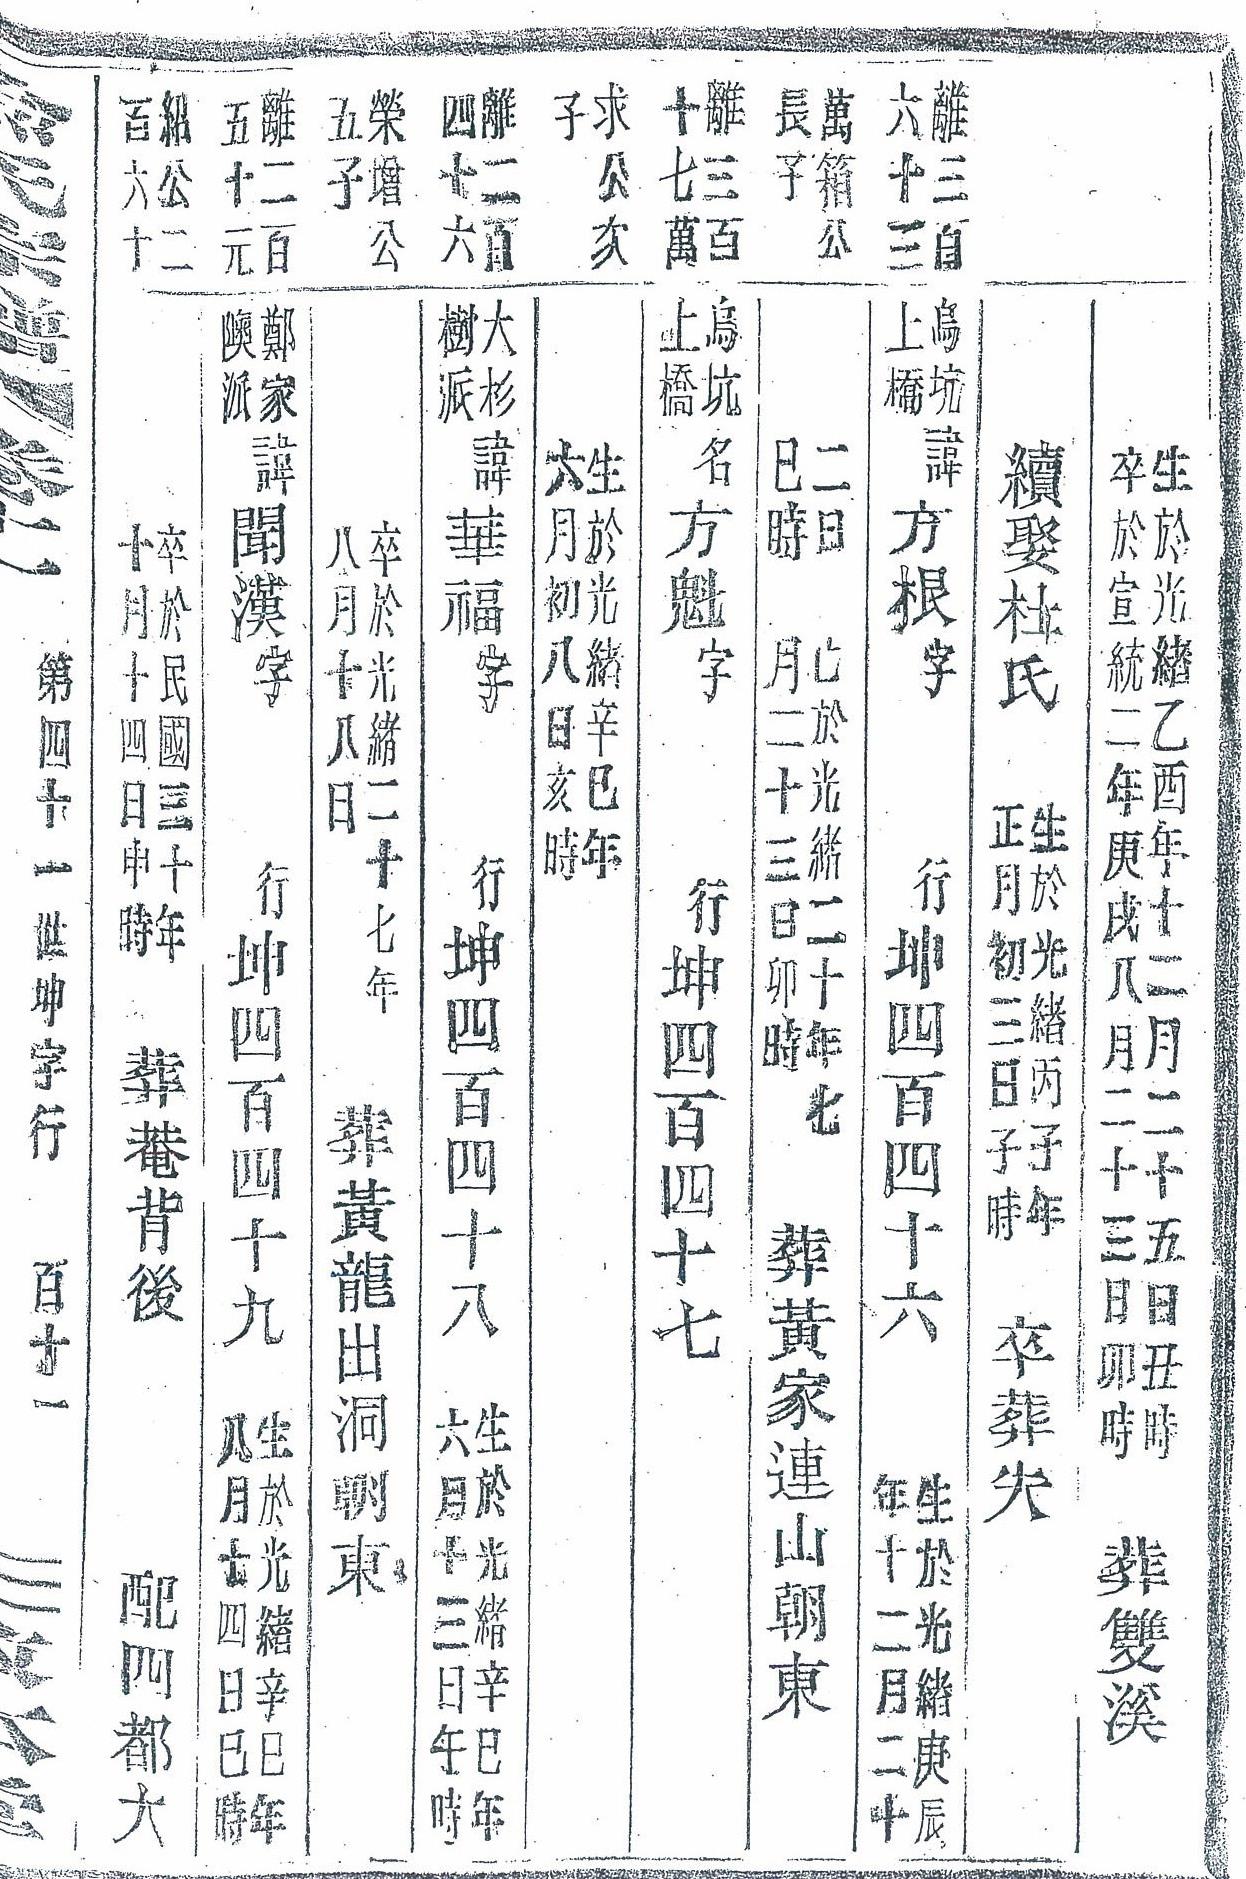 生於光緒乙酉年十二月二十五日丑時
卒於宣統二年庚戌八月二十三日卯時
葬雙溪
續娶杜氏
生於光緒丙子年
正月初三日子時
卒葬失
離三百
六十三
烏坑
上橋
諱方根字
行坤四百四十六
生於光緒庚辰
年十二月二十
萬箱公
長子
二日
巳時
七於光緒二十年七
月二十三日卯時
葬黃家連山朝東
離三百
十七萬
烏坑
上橋
名方魁字
行坤四百四十七
求公次
子
生於光緒辛巳年
六月初八日亥時
離二百
四十六
大杉
樹派
諱華福字
行坤四百四十八
生於光緒辛巳年
六月十三日午時
榮增公
五子
卒於光緒二十七年
八月十八日
葬黃龍出洞朝東
離二百
五十元
鄭家
隩派
諱聞漢字
行坤四百四十九
生於光緒辛巳年
八月十四日巳時
紹公二
百六十
卒於民國三十年
十月十四日申時
葬菴背後
配四都大
第四十一世坤字行
百十一